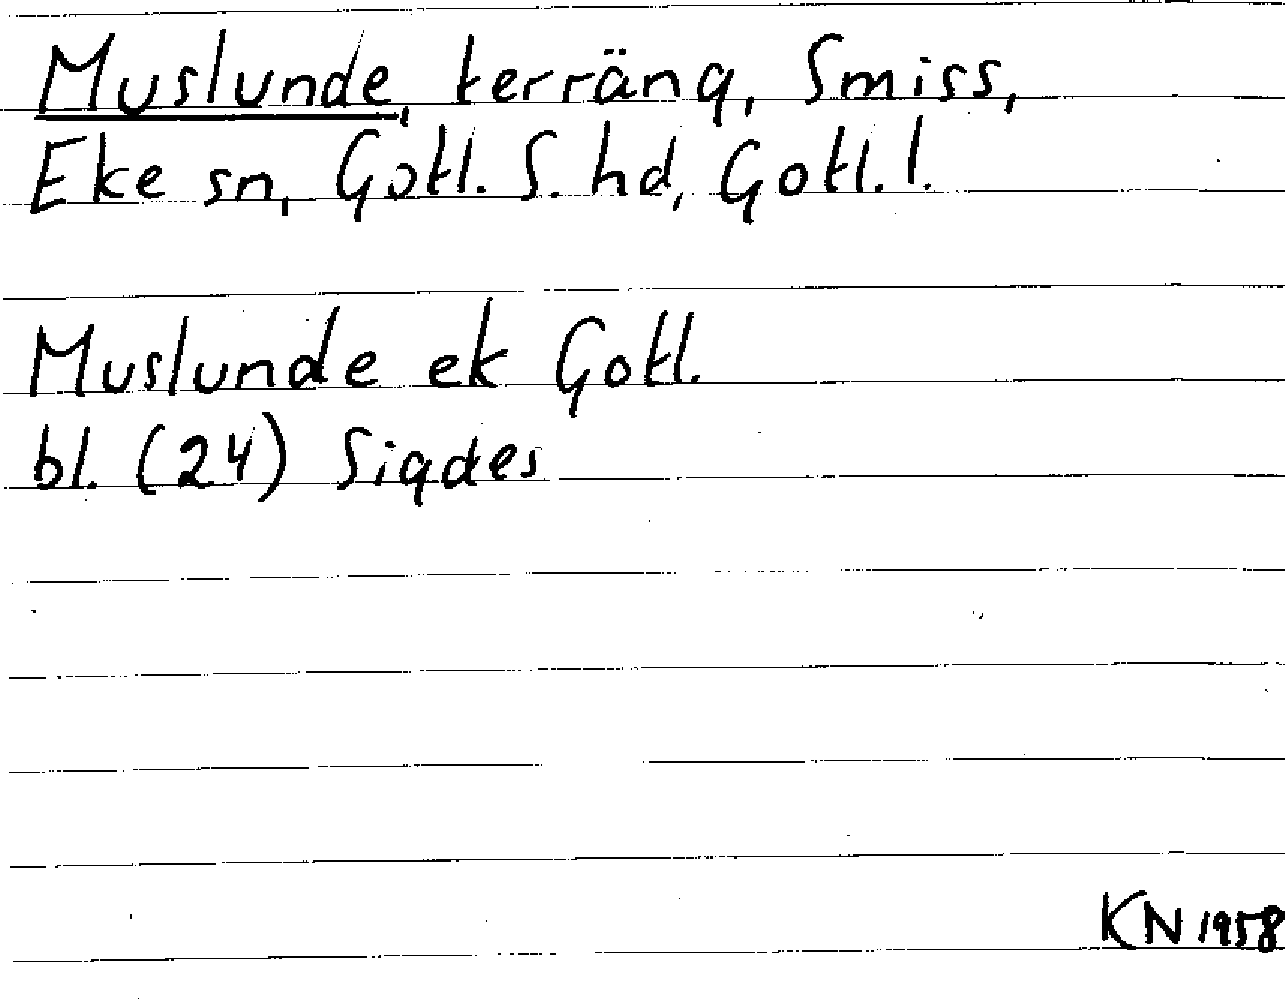 Muslunde, terräng, Smiss,
Eke sn, Gotl. S. hd, Gotl. l.
Muslunde ek Gotl.
bl. (24) Sigdes
KN 1958